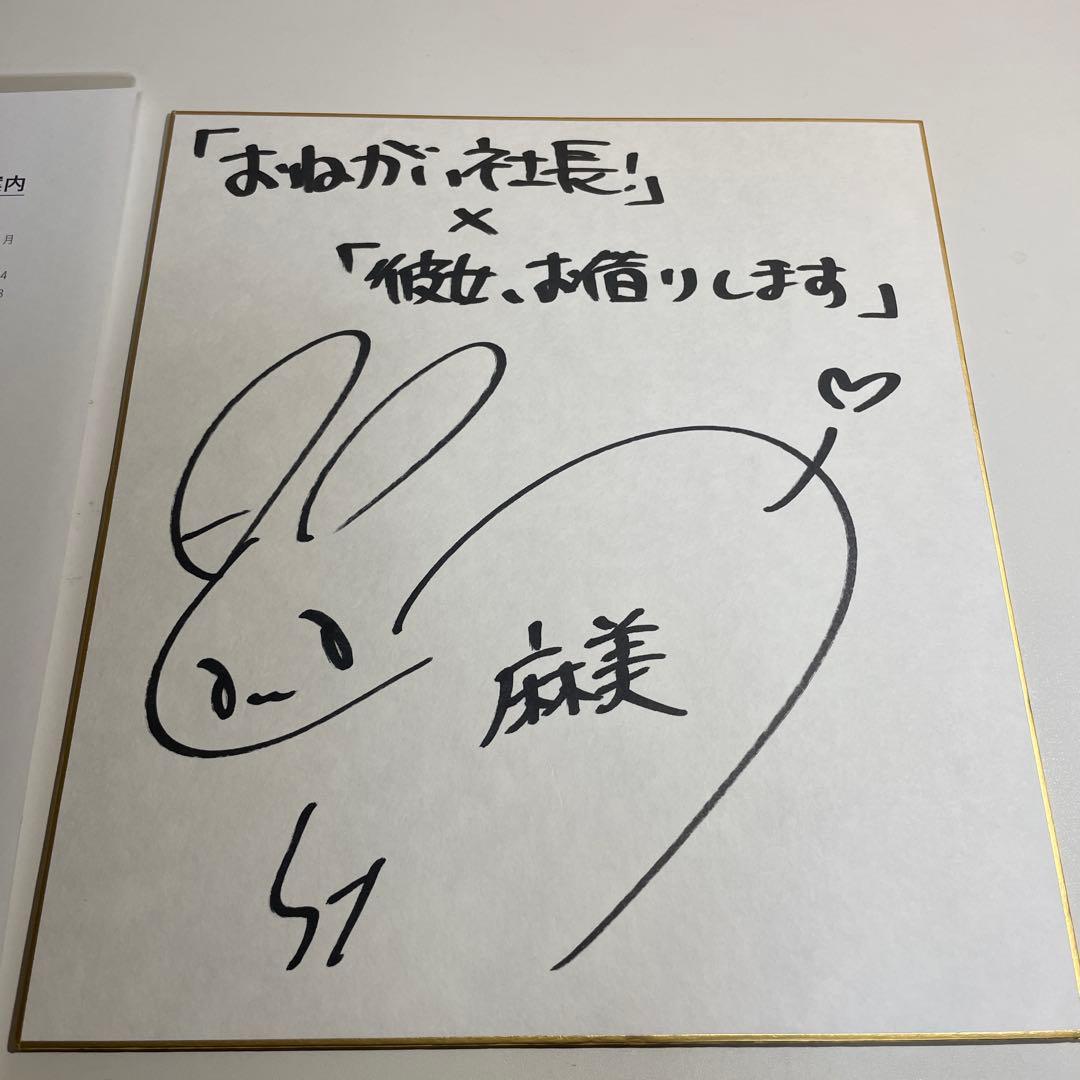 案内
月
4
8
「おねがい、社長!」
×
「彼女、お借りします」
麻美